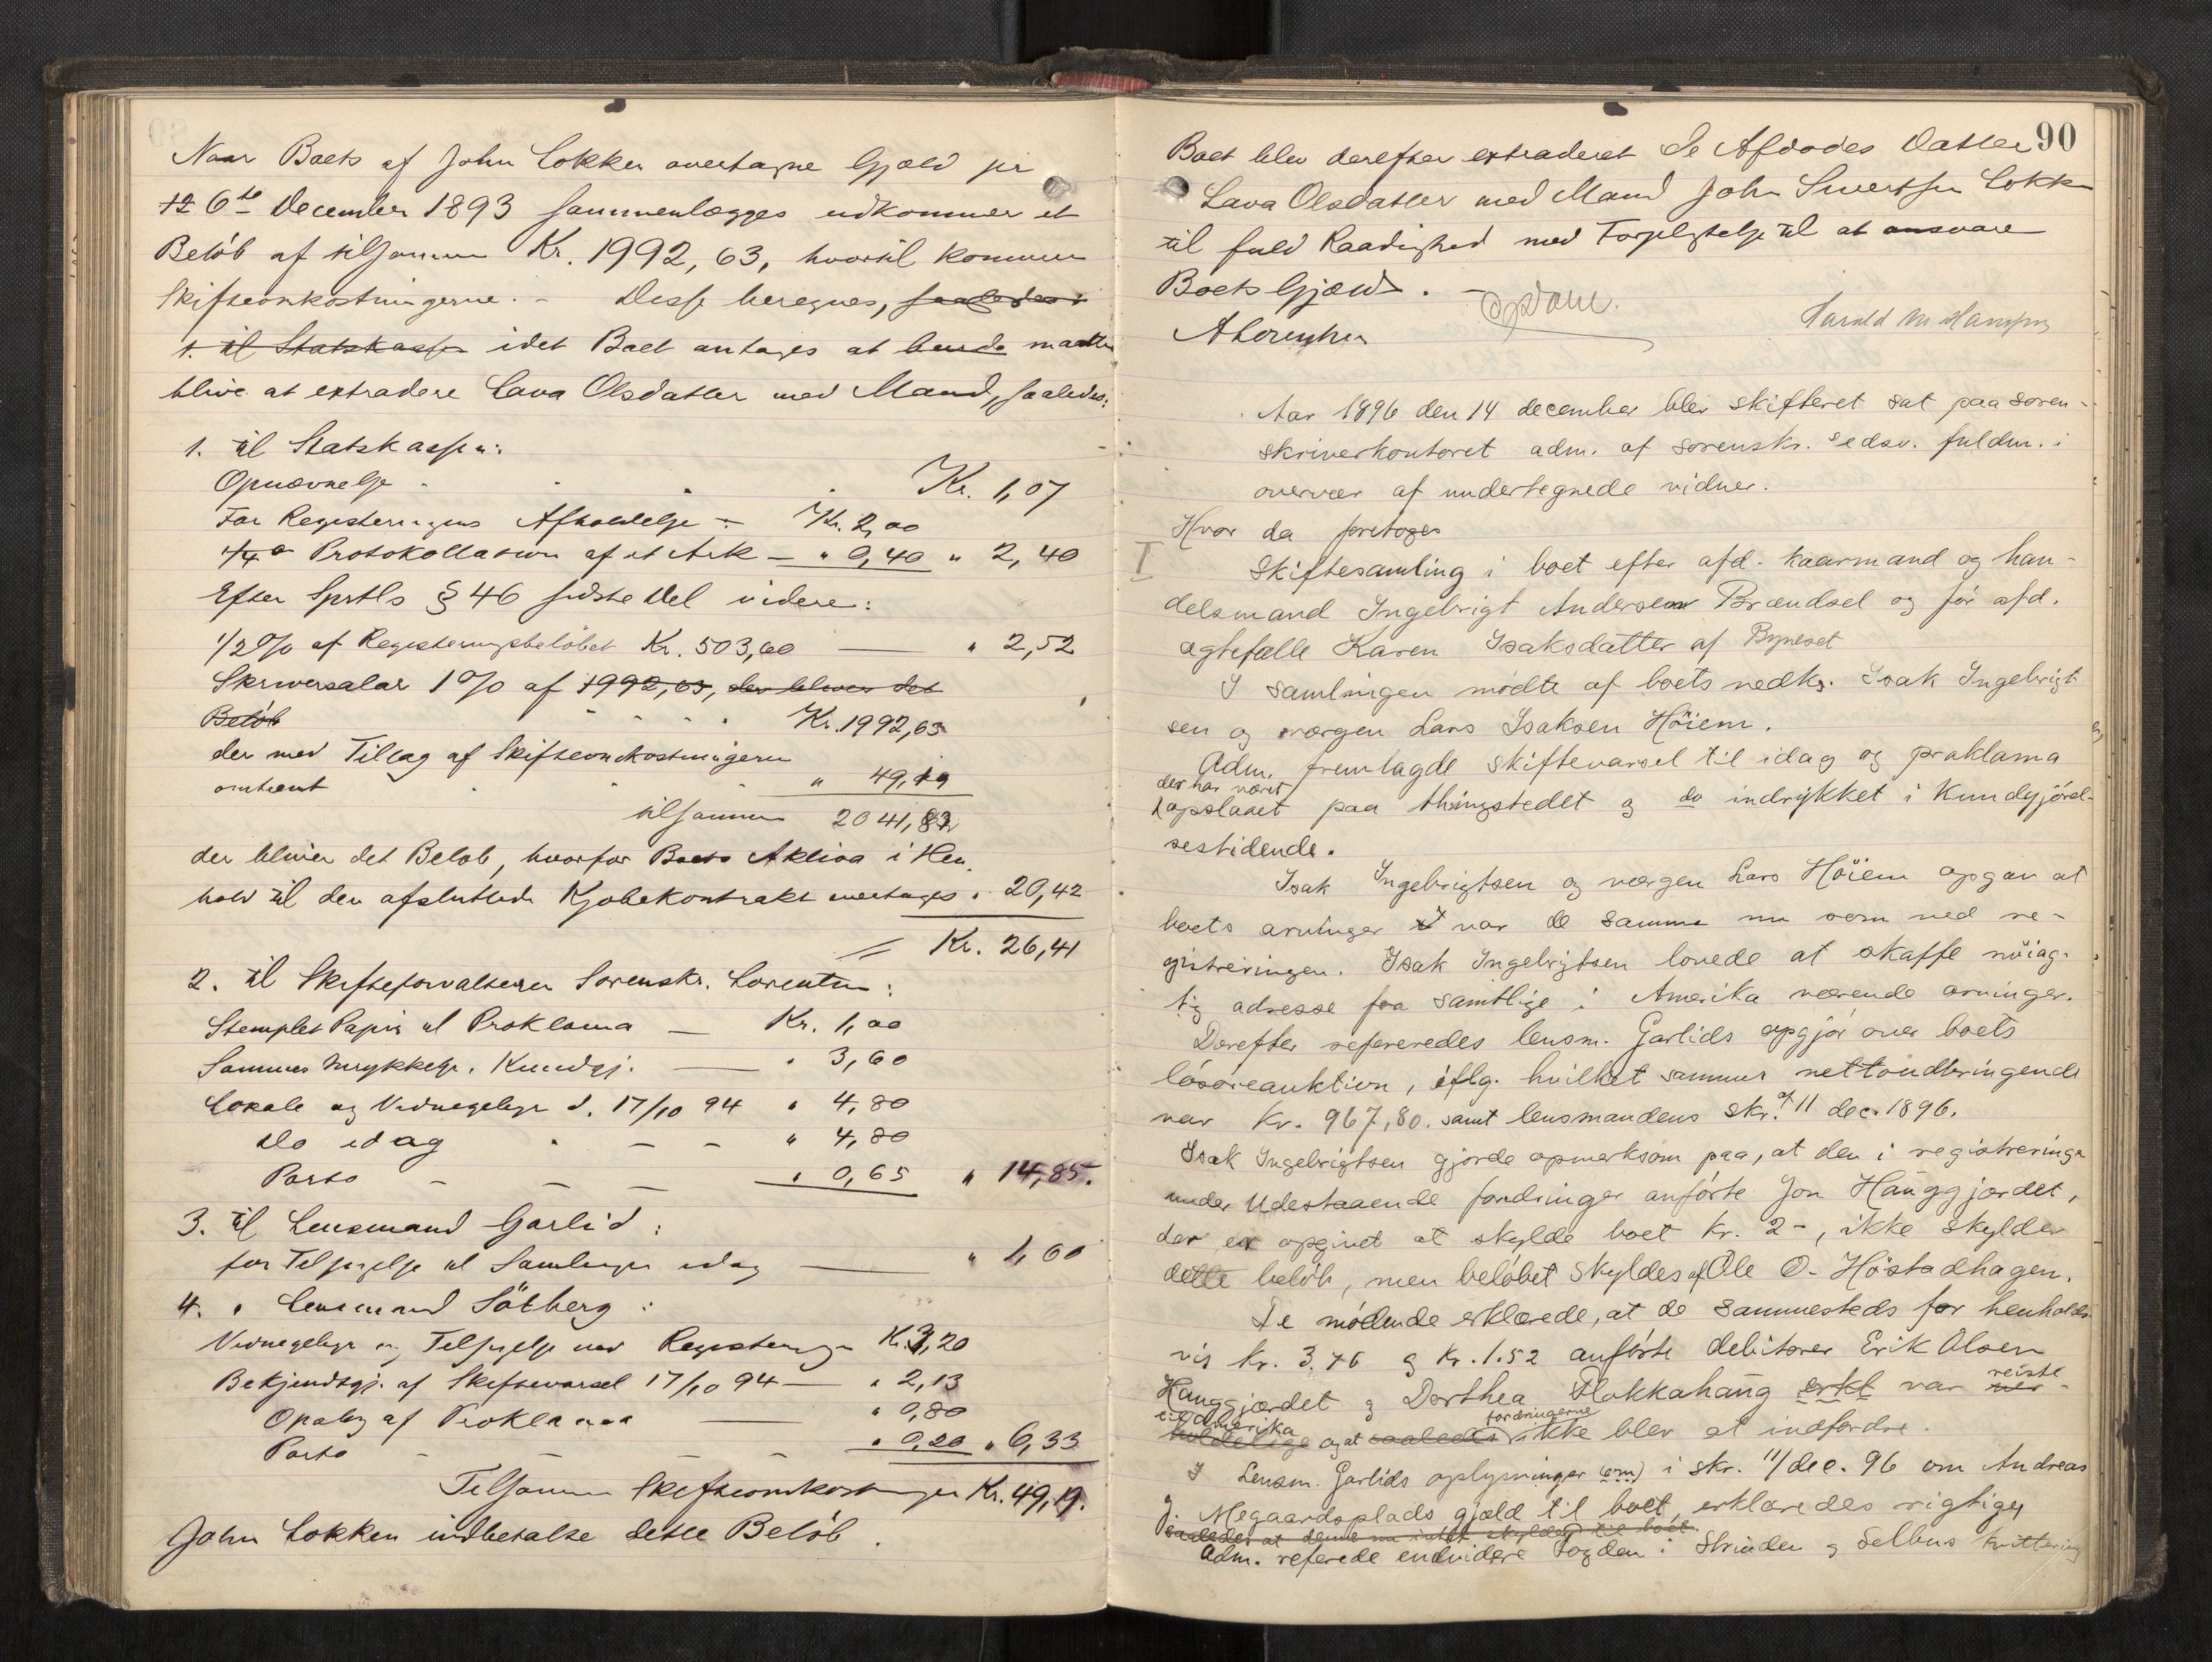 Naar Boets af John Lokken overtagne Gjæld pr
12 6te December 1893 sammenlægges udkommer et
Beløb af tilsammen Kr. 1992,63, hvortil kommer
Skifteomkostningerne. - Disse beregnes, saaledes:
1. til Statskassen idet Boet antages at burde maatte
blive at extradere Lava Olsdatter med Mand, saaledes:
1. til Statskassen:
Opnævnelse . . . . Kr. 1,07
For Registeringens Afholdelse - Kr. 2,00
Protokollation af et Ark - " 0,40 " 2,40
Efter Sprtls § 46 sidste Del videre:
1/2 % af Registeringsbeløbet Kr. 503,00 — " 2,52
Skriversalær 1 % af 1992,63, der bliver det
Beløb - - - - Kr. 1992,63
der med Tillæg af Skifteomkostningerne
omtrent - - - " 49,19
tilsammen 2041,82
der bliver det Beløb, hvorfor Boets Aktiva i Hen-
hold til den afsluttede Kjøbekontrakt overtages " 20,42
= Kr. 26,41
2. til Skifteforvalteren Sorenskr. Lorentzen:
Stemplet Papir til Proklama — Kr. 1,00
Sammes Indrykkelse i Kundgj. — " 3,60
Lokale og Vidnegebyr d. 17/10 94 " 4,80
Do idag - - - " 4,80
Porto - - - " 0,65 " 14,85.
3. til Lensmand Garlid:
for Tilsigelse til Samlingen idag — " 1,60
4. " Lensmand Søtberg:
Vidnegebyr og Tilsigelse ved Registeringen Kr. 3,20
Bekjendtgj. af Skiftevarsel 17/10 94 — " 2,13
Opslag af Proklama — " 0,80
Porto - - - " 0,20 " 6,33
Tilsammen Skifteomkostninger Kr. 49,19.
John Lokken indbetalte dette Beløb.
90
Boet blev derefter extraderet De Afdødes Datter
Lava Olsdatter med Mand John Sivertsen Lokken
til fuld Raadighed med Forpligtelse til at ansvare
Boets Gjæld. -
ALorentzen
Harald M Hansen
Aar 1896 den 14 december blev skifteret sat paa soren-
skriverkontoret adm. af sorenskr. edsv. fuldm. i
overvær af undertegnede vidner.
Hvor da foretoges
I Skiftesamling i boet efter afd. kaarmand og han-
delsmand Ingebrigt Andersen Brændsel og før afd.
ægtefælle Karen Isaksdatter af Bynesset
I samlingen mødte af boets vedk. Isak Ingebrigt-
sen og værgen Lars Isaksen Høiem.
Adm. fremlagde skiftevarsel til idag og proklama
der har været
opslaaet paa thingstedet og do indrykket i Kundgjørel-
sestidende.
Isak Ingebrigtsen og værgen Lars Høiem opgav at
boets arvinger var de samme nu som ved re-
gistreringen. Isak Ingebrigtsen lovede at skaffe nøiag-
tig adresse paa samtlige i Amerika værende arvinger.
Derefter refereredes lensm. Garlids opgjør over boets
løsøreauktion, iflg. hvilket sammes nettoudbringende
var Kr. 967,80. samt lensmandens skr. af 11 dec. 1896.
Isak Ingebrigtsen gjorde opmerksom paa, at den i registreringen
under Udestaaende fordringer anførte Jon Hauggjærdet,
der er opgivet at skylde boet kr. 2-, ikke skylder
dette beløb, men beløbet skyldes af Ole O. Høstadhagen.
De mødende erklærede, at de sammesteds for henholds-
vis kr. 3.76 og kr. 1.52 anførte debitorer Erik Olsen
Hauggjærdet og Dorthea Flokkahaug erkl var reiste
til Amerika og at saaledes fordringerne ikke blev at indfordre.
I Lensm. Garlids oplysninger (om) i skr. 11/dec. 96 om Andreas
J. Megaardsplads gjæld til boet, erklæredes rigtige,
saaledes at denne nu intet skylder til boet.
Adm. referede endvidere Fogden i Strinden og Selbus kvittering